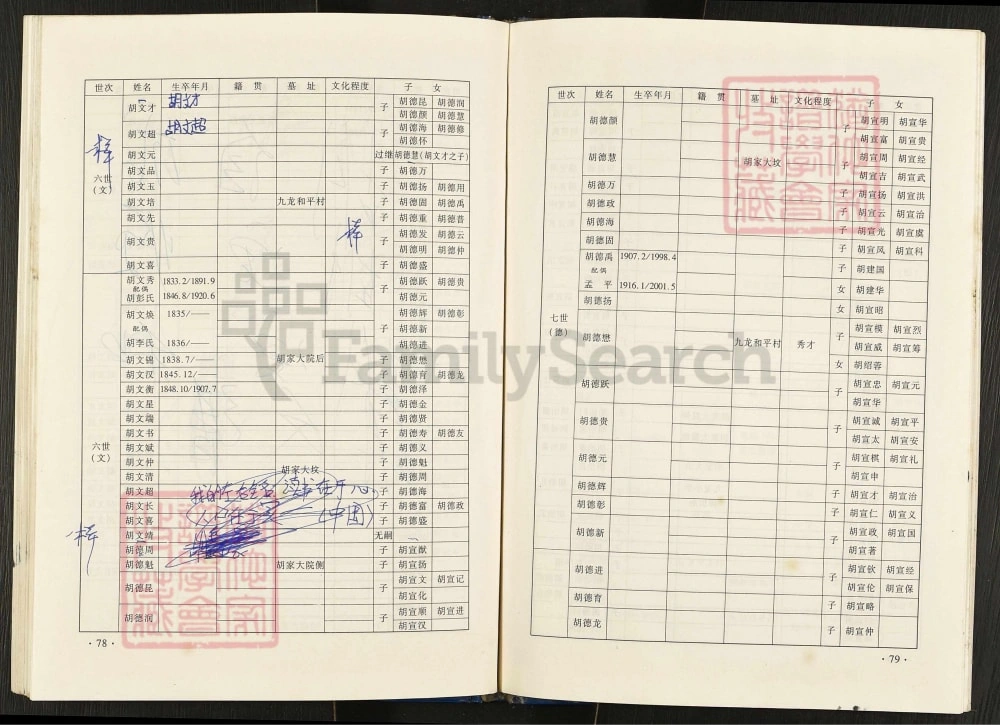 世次 姓名 生卒年月 籍贯 墓址 文化程度 子女
胡文才 胡文才 子 胡德昆 胡德润
胡德颜 胡德慧
胡文超 胡文超 子 胡德海 胡德修
胡德怀
胡文元 过继胡德慧(胡文才之子)
六世(文) 胡文品 子 胡德万
胡文玉 子 胡德扬 胡德用
胡文培 九龙和平村 子 胡德固 胡德禹
胡文先 子 胡德重 胡德普
胡文贵 子 胡德发 胡德云
胡德明 胡德仲
胡文喜 子 胡德盛
胡文秀 1833.2/1891.9 子 胡德跃 胡德贵
配偶
胡彭氏 1846.8/1920.6 胡德元
胡文焕 1835/— 胡德辉 胡德彰
配偶 子 胡德新
胡李氏 1836/— 胡德进
胡文锦 1838.7/— 胡家大院后 子 胡德懋
胡文汉 1845.12/— 子 胡德育 胡德龙
胡文衡 1848.10/1907.7 子 胡德泽
胡文星 子 胡德金
胡文端 子 胡德贤
胡文书 子 胡德寿 胡德友
六世(文) 胡文斌 子 胡德义
胡文仲 子 胡德魁
胡文清 胡家大坟 子 胡德周
胡文超 子 胡德海
胡文长 (中国) 子 胡德富 胡德政
胡文喜 子 胡德盛
胡文靖 无嗣
胡德周 子 胡宣猷
胡德魁 胡家大院侧 子 胡宣扬
胡德昆 子 胡宣文 胡宣记
胡宣化
胡德润 子 胡宣顺 胡宣进
胡宣汉
·78·
世次 姓名 生卒年月 籍贯 墓址 文化程度 子女
胡德颜 子 胡宣明 胡宣华
胡宣富 胡宣贵
胡德慧 胡家大坟 子 胡宣周 胡宣经
胡宣吉 胡宣武
胡德万 子 胡宣扬 胡宣洪
胡德政 子 胡宣云 胡宣治
胡德海 子 胡宣光 胡宣虞
胡德固 子 胡宣凤 胡宣科
胡德禹 1907.2/1998.4 子 胡建国
配偶
孟平 1916.1/2001.5 女 胡建华
胡德扬 女 胡宣昭
七世(德) 胡德懋 九龙和平村 秀才 子 胡宣模 胡宣烈
胡宣威 胡宣筹
女 胡绍蓉
胡德跃 子 胡宣忠 胡宣元
胡宣华
胡德贵 子 胡宣诚 胡宣平
胡宣太 胡宣安
胡德元 子 胡宣棋 胡宣礼
胡宣申
胡德辉 子 胡宣才 胡宣治
胡德彰 子 胡宣仁 胡宣义
胡德新 子 胡宣政 胡宣国
胡宣著
胡德进 子 胡宣钦 胡宣经
胡宣伦 胡宣保
胡德育 子 胡宣略
胡德龙 子 胡宣仲
·79·
FamilySearch